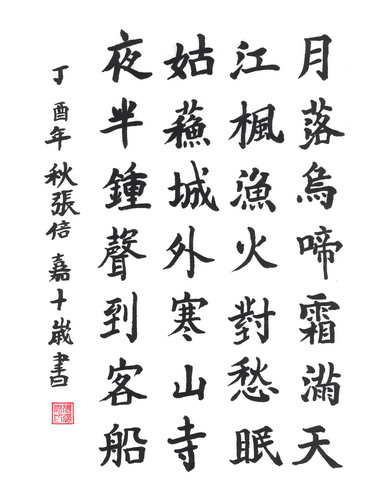 月落烏啼霜滿天
江楓漁火對愁眠
姑蘇城外寒山寺
夜半鍾聲到客船
丁酉年秋張倍嘉十歲書